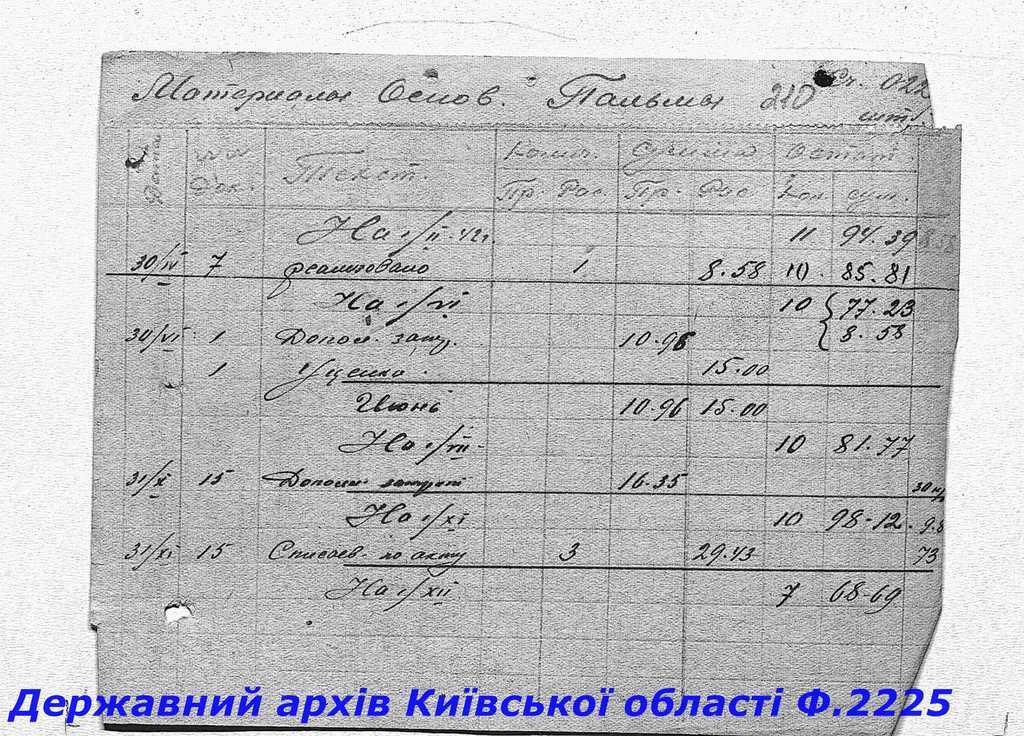 Материалы Основ. Пальмы 210 Сч. 022
шт.
Даты №№ Док. Текст. Колич. Сумма Остат.
Пр. Рас. Пр. Рас. Кол. сум.
На 1/II-42г. 11 94.39 8.58
30/IV 7 реализовано 1 8.58 10. 85.81
На 1/VI 10 77.23
8.58
30/VI 1 Допол. зат. 10.96
1 Уценка. 15.00
Июнь 10.96 15.00
На 1/VII- 10 81.77
31/X 15 Дополн затрат 16.35
На 1/XI 10 98-12.
31/XI 15 Списаев. по акту 3 29.43 73
На 1/XII 7 68-69
Державний архів Київської області Ф.2225